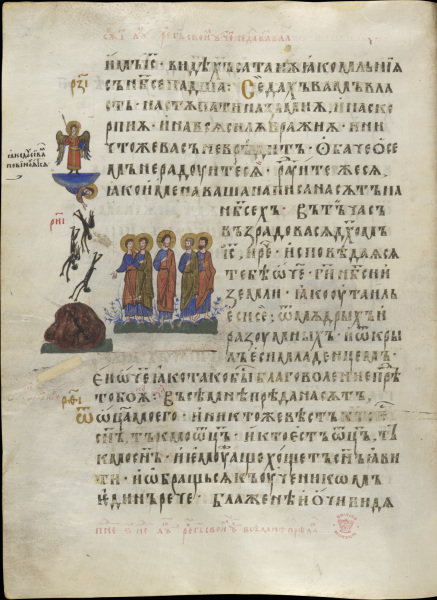 имъ і҃с · видѣхъ сатанѫ ꙗко млънїѫ
съ нб҃се падша · Се дахъ вамъ вла
сть · настѫпати на ѕмиѫ, и на ско
рпиѫ · и на всѫ силѫ вражиѫ · и ни
чтоже васъ не врѣдитъ · Обаче о се
мъ не радоуитесѧ · радоуитежесѧ,
ꙗко имена ваша написана сѫтъ на
нб҃сехъ · въ тъ часъ
възрадовасѧ дх҃омъ
і҃с, и рече · исповѣдаѫсѧ
тебѣ ѡч҃е · г҃и нб҃си и
земли · ꙗко оутаилъ
еси се · ѿ мѫдрыхъ и
разоумныхъ · и ѿкры
лъ еси младенцемъ ·
еи ѡч҃е ꙗко тако бы благоволение прѣ
тобоѫ · въсѣ мнѣ прѣдана сѫтъ,
ѿ ѡц҃а моего · и никтоже вѣстъ кто ес
сн҃ъ, тъкмо ѡц҃ъ · и кто естъ ѡц҃ъ, тъ
кмо сн҃ъ · и емоуже хощетъ сн҃ъ ꙗви
ти · и ѡбращьсѧ къ оученикѡмъ
единъ рече · блажени ѡчи видѧ